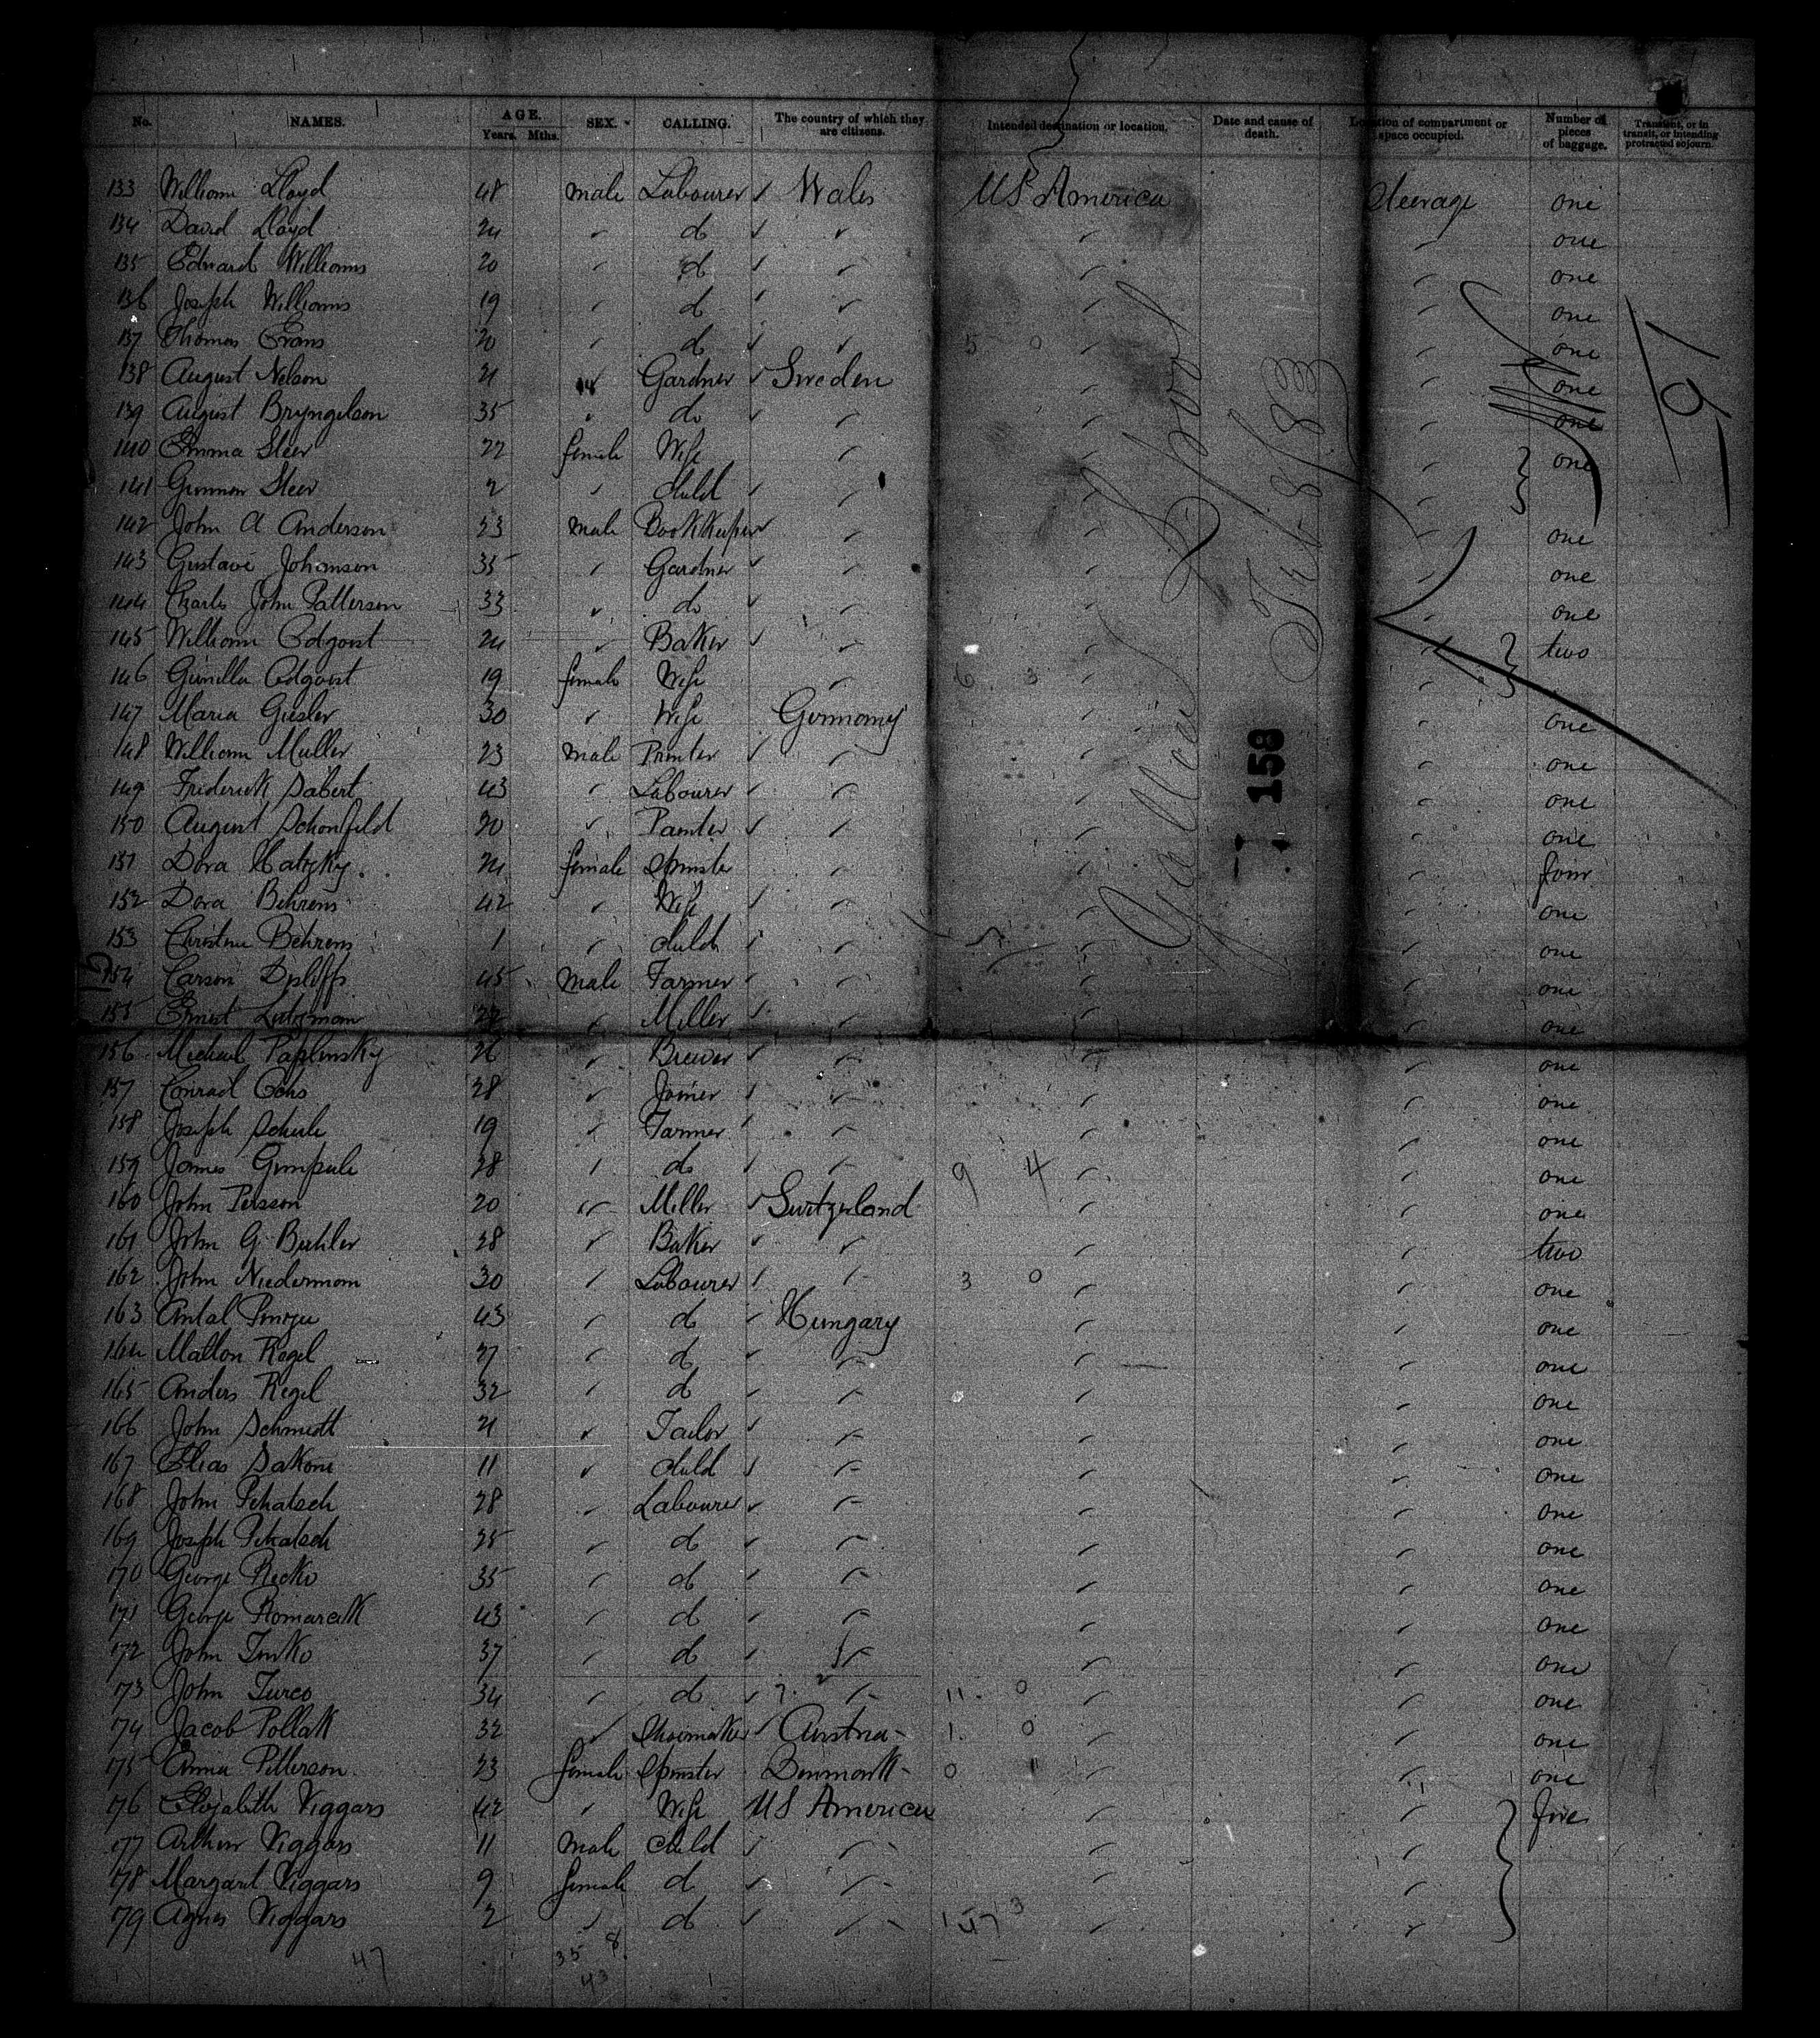 No. NAMES. AGE. Years. Mths. SEX. CALLING. The country of which they are citizens. Intended destination or location. Date and cause of death. Location of compartment or space occupied. Number of pieces of baggage. Transient, or in transit, or intending protracted sojourn.
133 William Lloyd 48 male Labourer Wales US America Steerage one
134 David Lloyd 24 do one
135 Edward Williams 20 do one
136 Joseph Williams 19 do one
137 Thomas Evans 20 do 5 0 one
138 August Nelson 21 Gardner Sweden one
139 August Bryngelson 35 do one
140 Emma Steer 22 female Wife one
141 Gunnar Steer 2 child
142 John A Anderson 23 male Bookkeeper one
143 Gustave Johanson 35 Gardner one
144 Charles John Patterson 33 do one
145 William Edqvist 24 Baker two
146 Gunilla Edqvist 19 female Wife 6 3
147 Maria Giesler 30 Wife Germany one
148 William Muller 23 male Printer one
149 Frederick Sabert 43 Labourer one
150 August Schonfeld 20 Painter one
151 Dora Hatzky 24 female Spinster four
152 Dora Behrens 42 Wife one
153 Christine Behrens 1 child one
154 Carson 45 male Farmer one
155 Ernest Lutzman 22 Miller one
156 Michael Paplinsky 26 Brewer one
157 Conrad Ochs 28 Joiner one
158 Joseph Schule 19 Farmer one
159 James Gumpule 28 do 9 4 one
160 John Persson 20 Miller Switzerland one
161 John G Buhler 28 Baker two
162 John Niederman 30 Labourer 3 0 one
163 Antal 43 do Hungary one
164 Matton Regel 27 do one
165 Anders Regel 32 do one
166 John Schmidt 21 Tailor one
167 Elias Sakone 11 child one
168 John Pekatsch 28 Labourer one
169 Joseph Pekatsch 25 do one
170 George Recko 35 do one
171 George Romarcik 43 do one
172 John Tinko 37 do one
173 John Turco 34 do 11 0 one
174 Jacob Pollak 32 Shoemaker Austria 1 0 one
175 Anna Petterson 23 female Spinster Denmark 0 1 one
176 Elizabeth Viggars 42 Wife US America five
177 Arthur Viggars 11 male child
178 Margaret Viggars 9 female do
179 Agnes Viggars 2 do
47 35 8
43
158